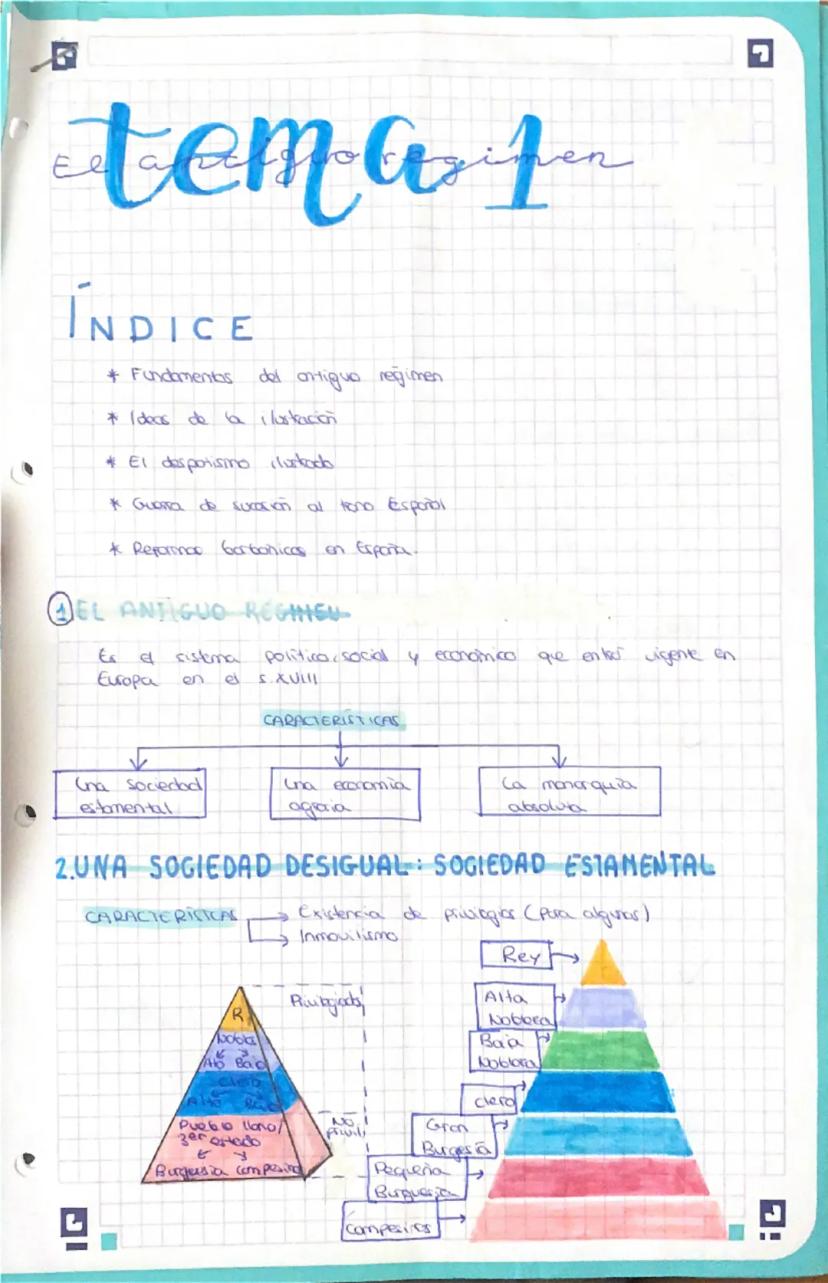 tema 1
El antiguo regimen
ÍNDICE
* Fundamentos del antiguo régimen
* Ideas de la ilustración
* El despotismo ilustrado
* Guerra de sucesión al trono Español
* Reformas borbónicas en España.
1 EL ANTIGUO REGIMEN
Es el sistema político, social y económico que entró vigente en
Europa en el s.XVIII
CARACTERÍSTICAS
Una sociedad
estamental
Una economía
agraria
La monarquía
absoluta
2. UNA SOCIEDAD DESIGUAL: SOCIEDAD ESTAMENTAL
CARACTERÍSTICAS
Existencia de privilegios (Para algunos)
Inmovilismo
R.
Nobles
Alto Bajo
Clero
Alto Bajo
Pueblo llano/
3er estado
Burguesía Campesino
Privilegiados
No
privil.
Rey
Alta
Nobleza
Baja
Nobleza
Clero
Gran
Burgesía
Pequeña
Burguesía
Campesinos